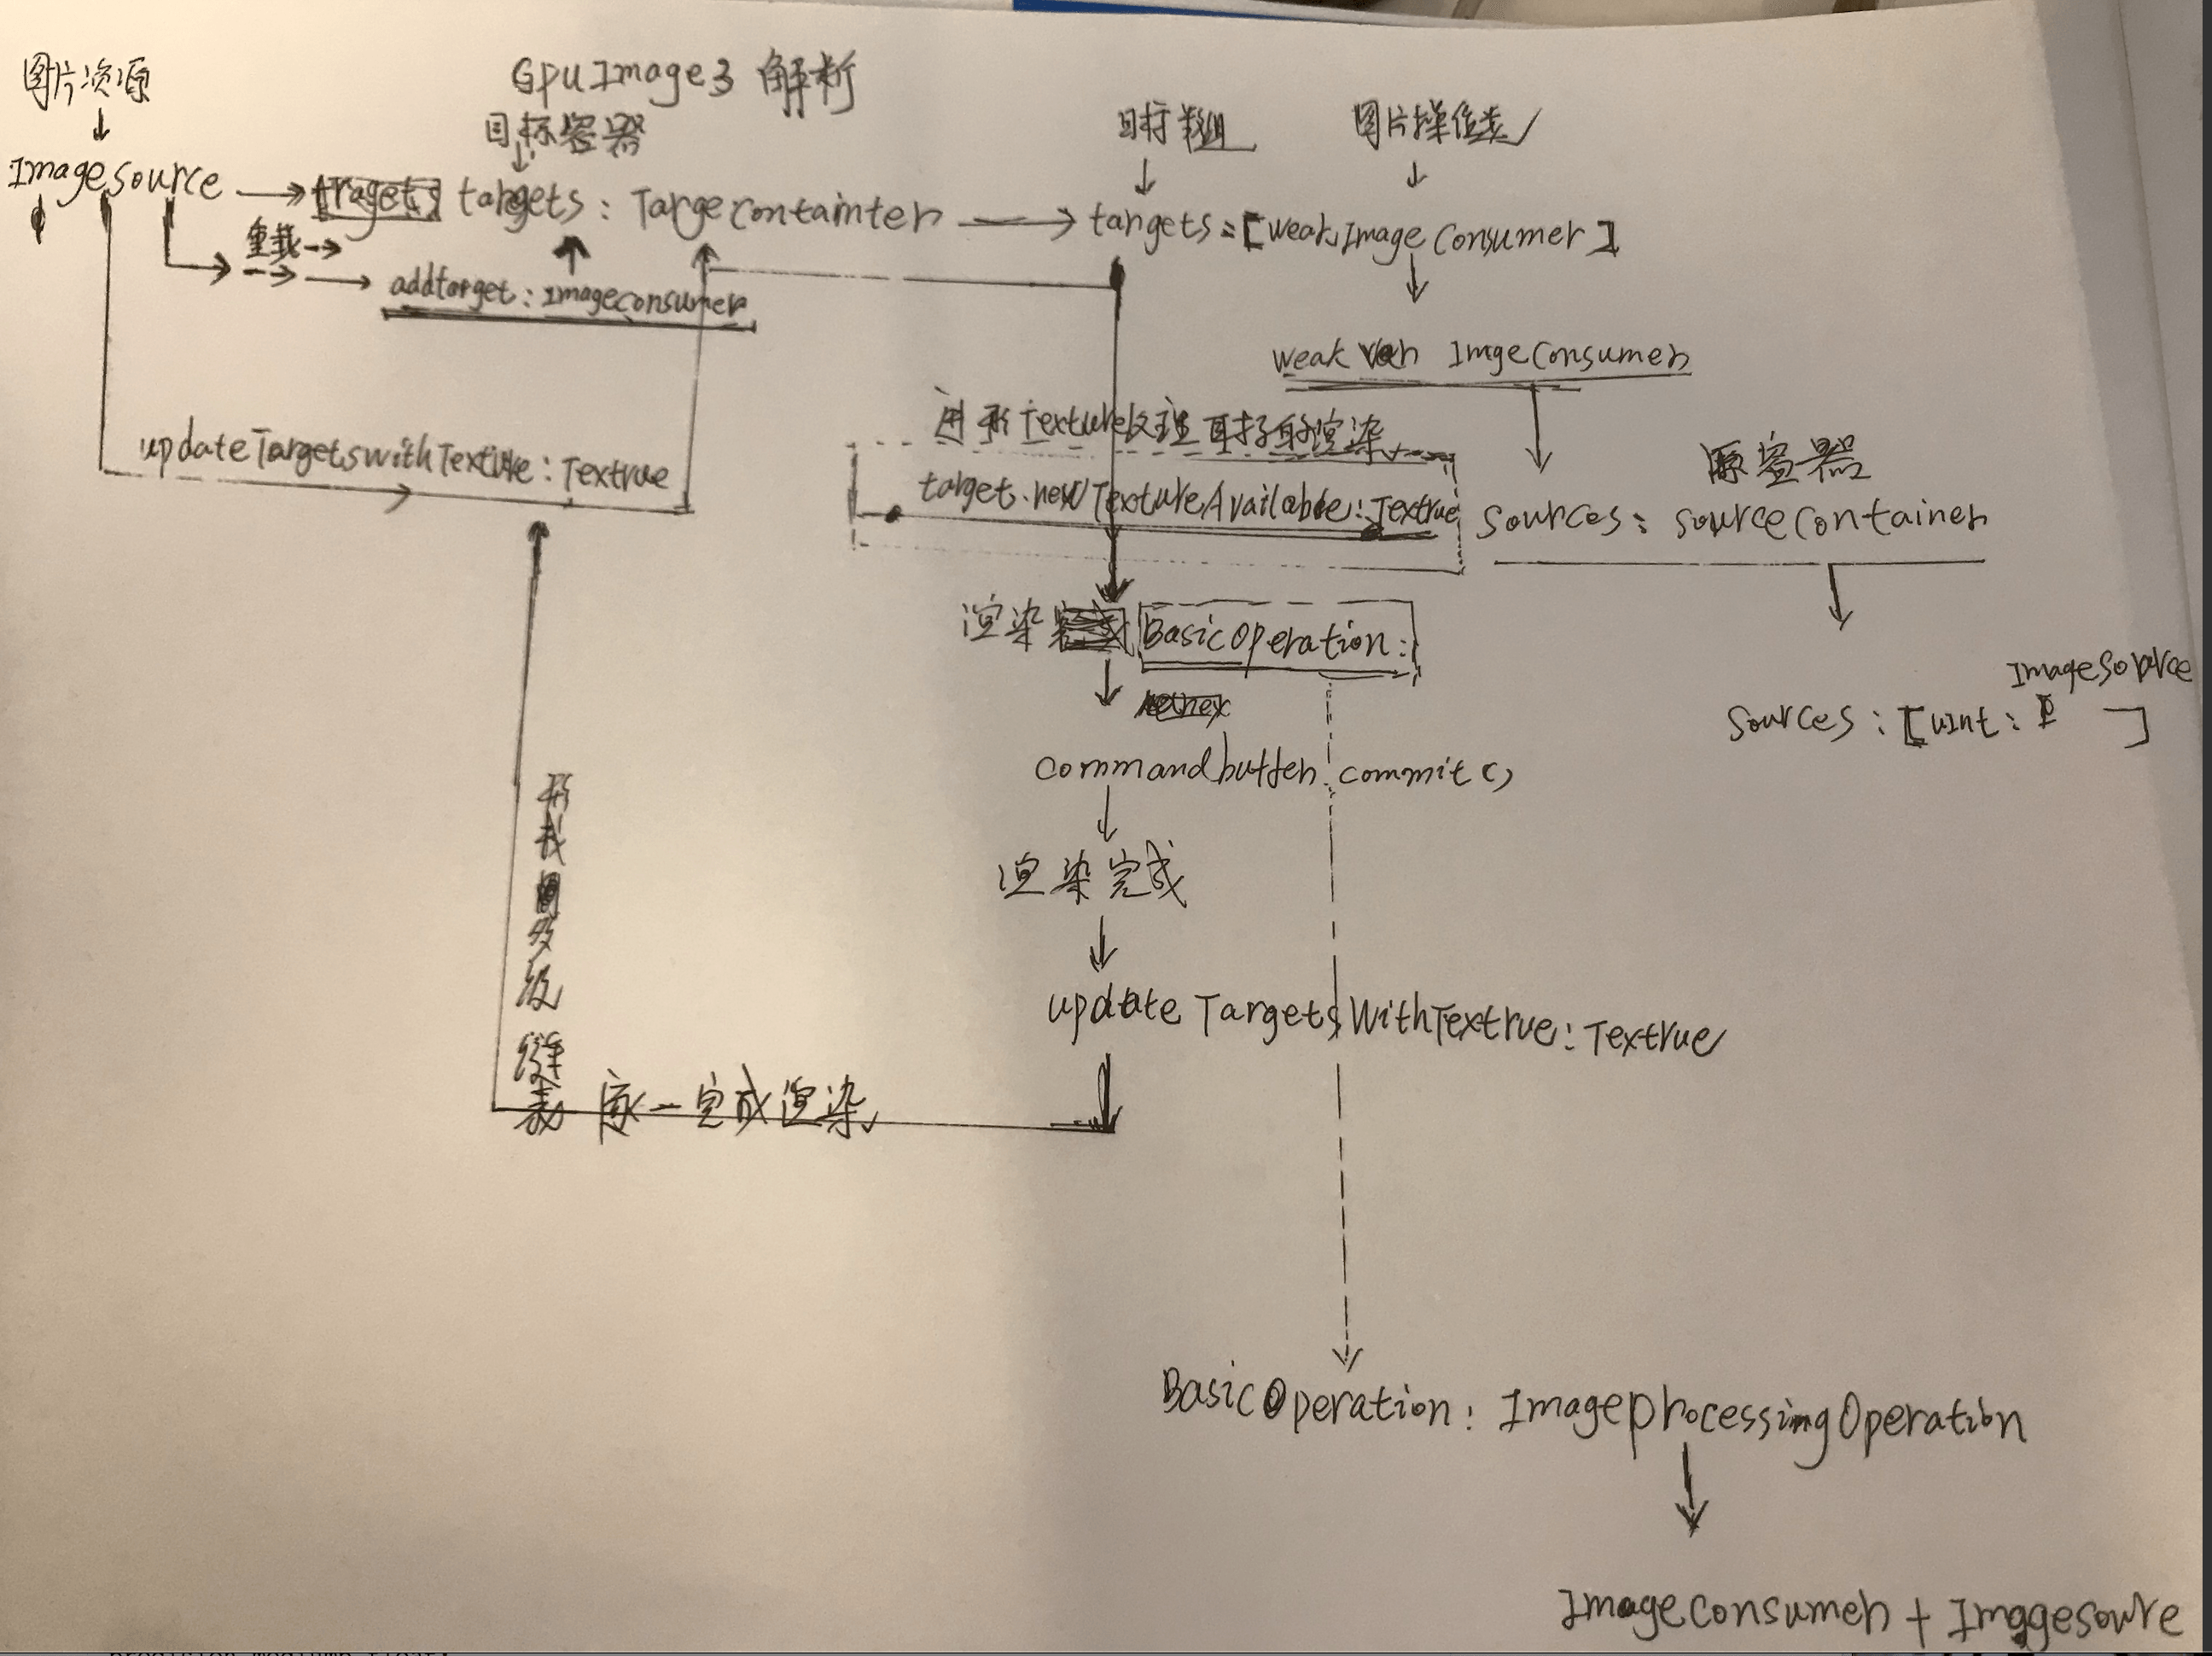 图片资源
GpuImage3 解析
目标容器
目标数组
图片操作类
ImageSource
targets: TargeContainter
targets=[weakImageConsumer]
重载
addtarget: imageconsumer
weak var ImgeConsumer
进行Texture纹理目标的渲染
updateTargetswithTexture: Textrue
target.newTextureAvailable: Textrue
原容器
Sources: sourceContainer
渲染
BasicOperation:
ImageSource
Sources: [uInt: ]
commandbuffer.commit()
渲染完成
update TargetsWithTextrue: Textrue
多级链表
逐一完成渲染
BasicOperation: ImageprocessingOperation
ImageConsumer + Imagesoure